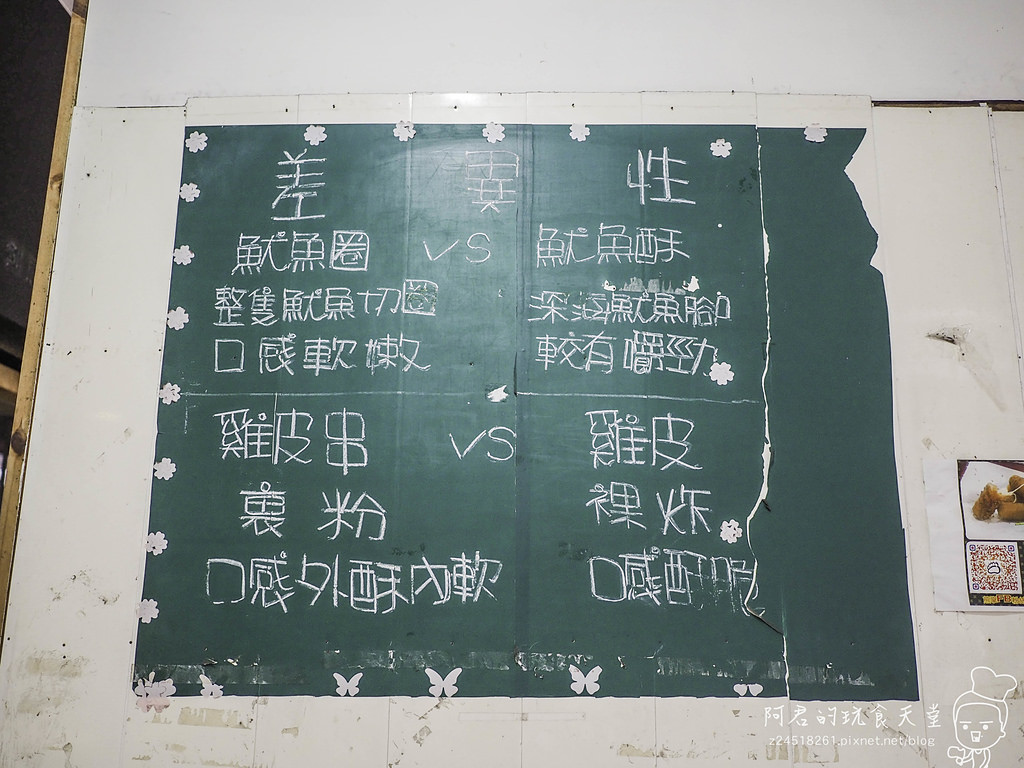 差異性
魷魚圈 VS 魷魚酥
整隻魷魚切圈 深海魷魚腳
口感軟嫩 較有嚼勁
雞皮串 VS 雞皮
裹粉 裸炸
口感外酥內軟 口感酥脆
阿君的玩食天堂
z24518261.pixnet.net/blog